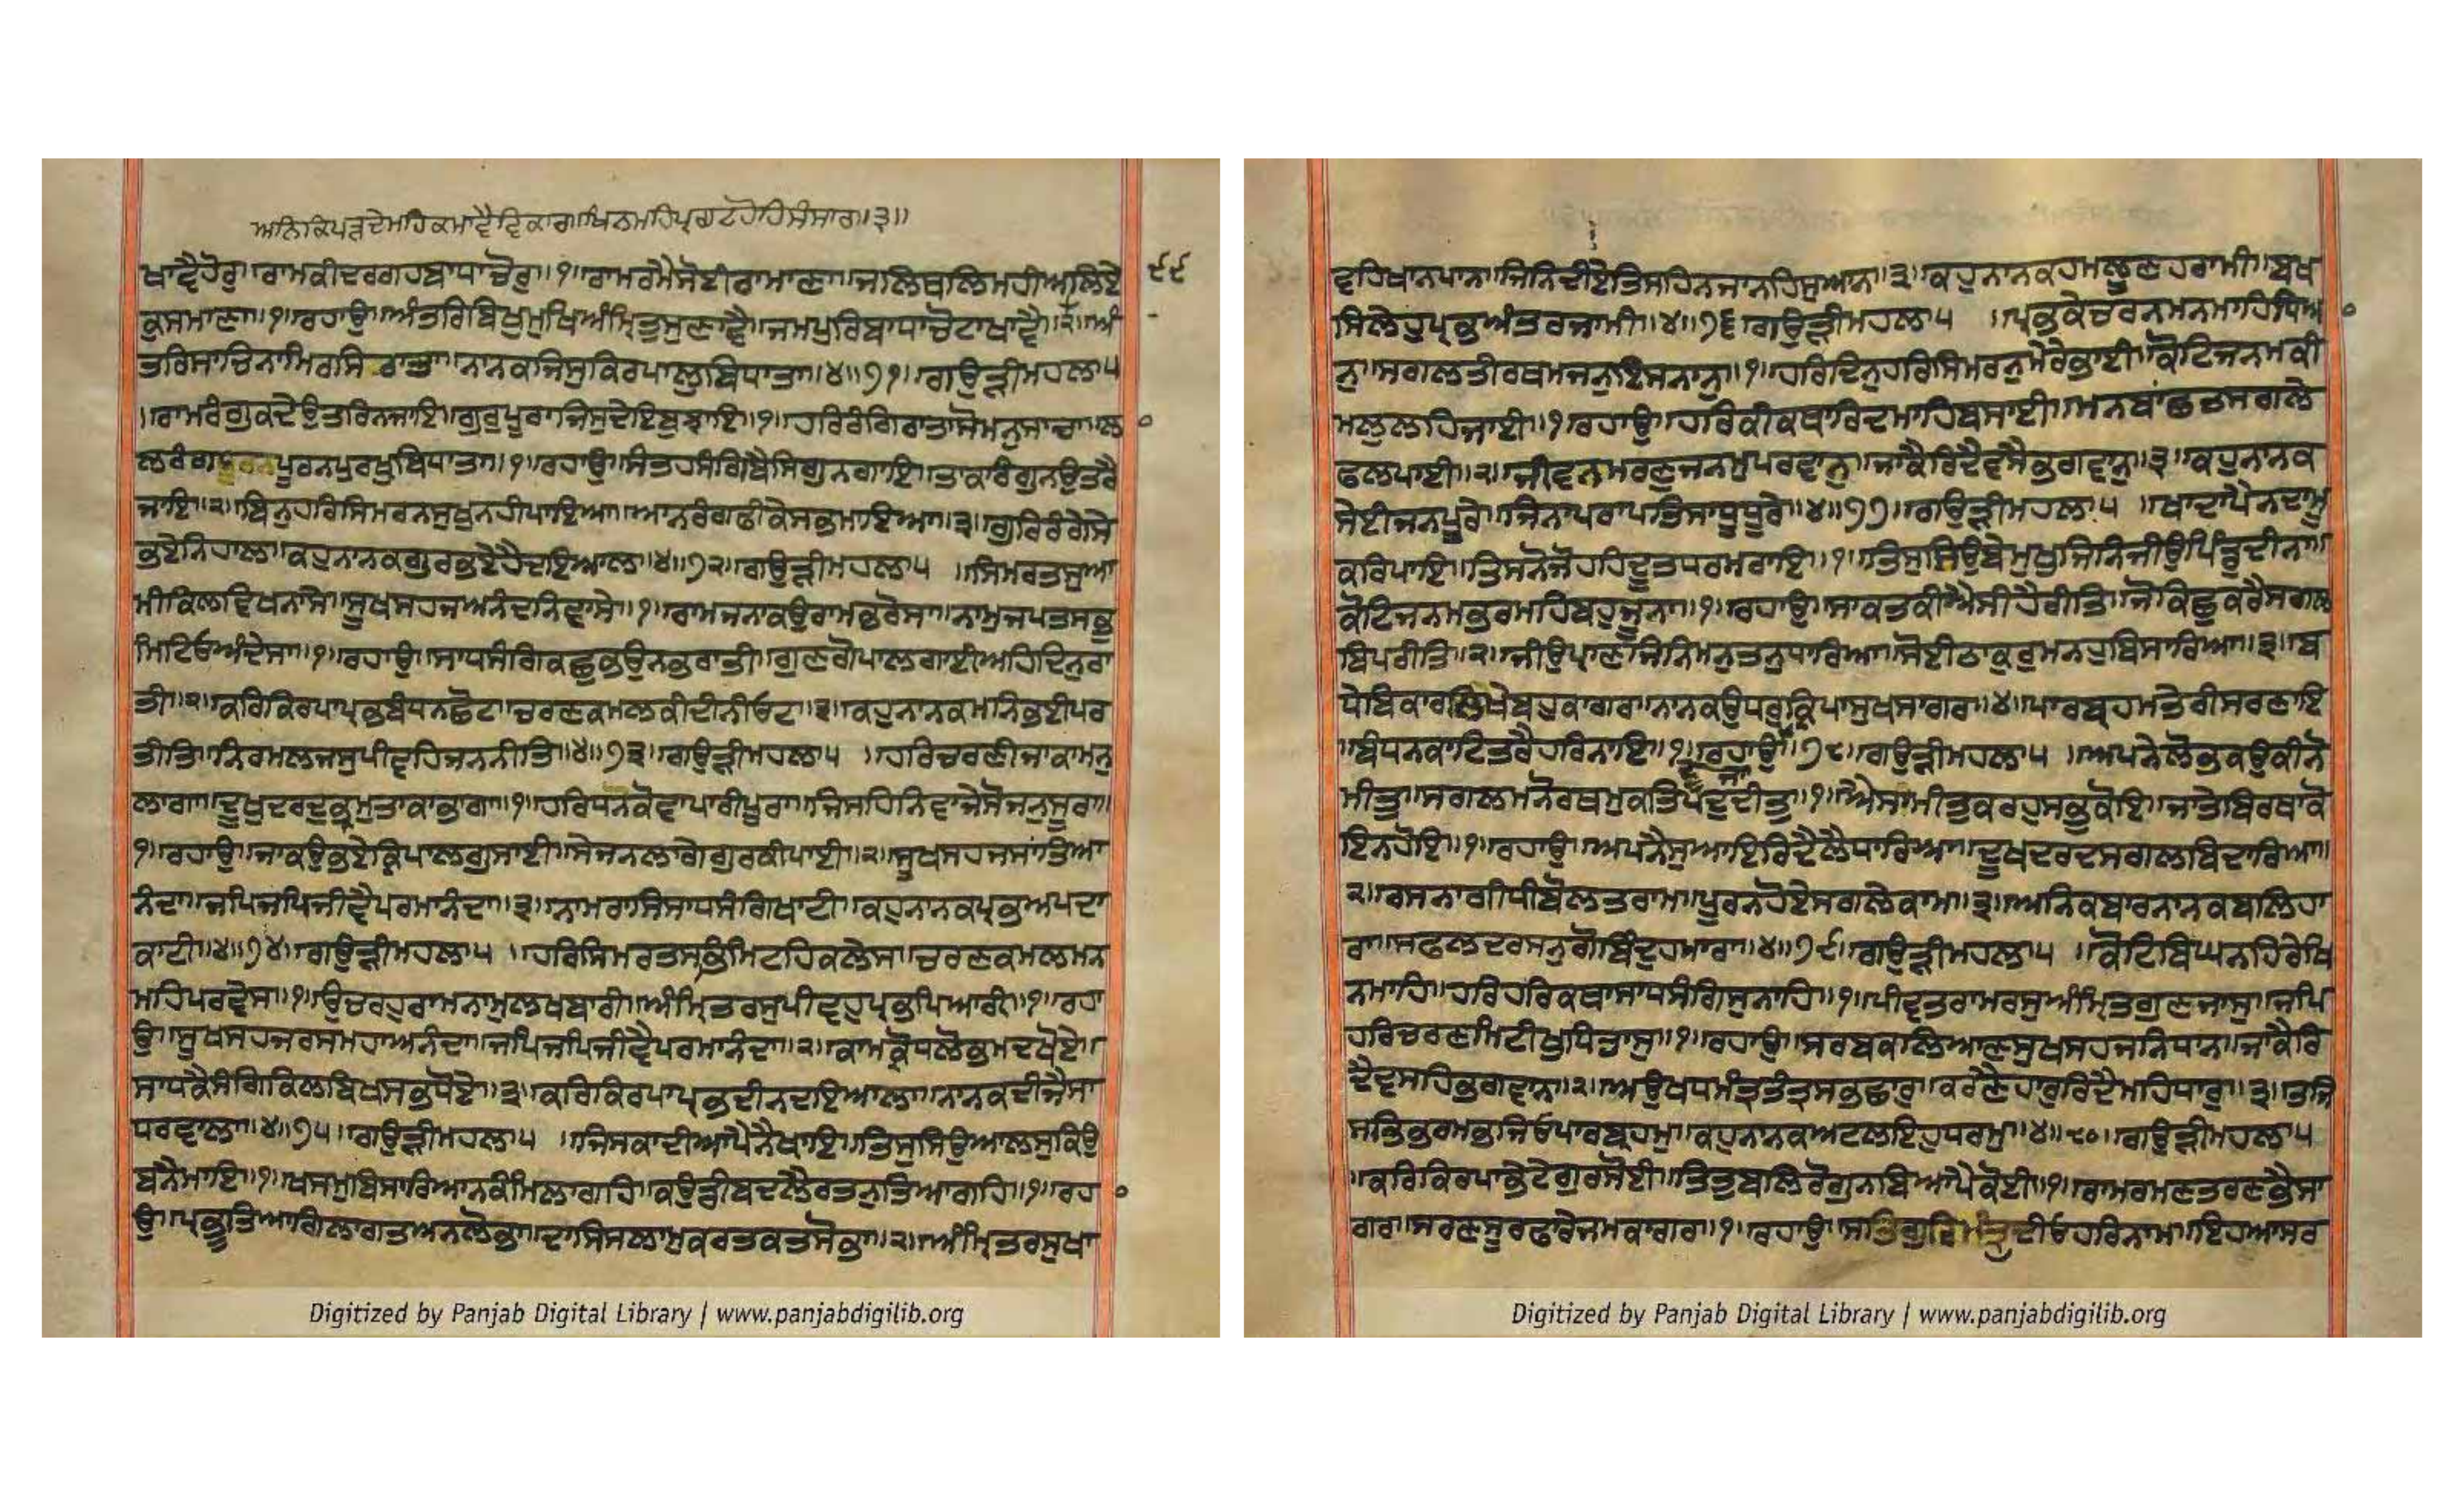 ਅਨਿਕਪੜਦੇਮਹਿਕਮਾਵੈਵਿਕਾਰ॥ਖਿਨਮਹਿਪ੍ਰਗਟਹੋਹਿਸੰਸਾਰ॥੩॥
ਖਾਵੈਹੋਰੁ॥ਰਾਮਕੀਦਰਗਹਬਾਧਾਚੋਰੁ॥੧॥ਰਾਮਰਮੈਸੋਈਰਾਮਾਣਾ॥ਜਲਿਥਲਿਮਹੀਅਲਿਏ
੯੯
ਕੁਸਮਾਣਾ॥੧॥ਰਹਾਉ॥ਅੰਤਰਿਬਿਖੁਮੁਖਿਅੰਮ੍ਰਿਤੁਸੁਣਾਵੈ॥ਜਮਪੁਰਿਬਾਧਾਚੋਟਾਖਾਵੈ॥੨॥ਅੰ
ਤਰਿਸਾਚਿਨਾਮਿਰਸਿਰਾਤਾ॥ਨਾਨਕਜਿਸੁਕਿਰਪਾਲੁਬਿਧਾਤਾ॥੪॥੭੧॥ਗਉੜੀਮਹਲਾ੫
॥ਰਾਮਰੰਗੁਕਦੇਉਤਰਿਨਜਾਇ॥ਗੁਰੁਪੂਰਾਜਿਸੁਦੇਇਬੁਝਾਇ॥੧॥ਹਰਿਰੰਗਿਰਾਤਾਸੋਮਨੁਸਾਚਾ॥ਲਾ
ਲਰੰਗਪੂਰਨਪੁਰਖੁਬਿਧਾਤਾ॥੧॥ਰਹਾਉ॥ਸੰਤਹਸੰਗਿਬੈਸਿਗੁਨਗਾਇ॥ਤਾਕਾਰੰਗੁਨਉਤਰੈ
ਜਾਇ॥੨॥ਬਿਨੁਹਰਿਸਿਮਰਨਸੁਖੁਨਹੀਪਾਇਆ॥ਆਨਰੰਗਫੀਕੇਸਭਮਾਇਆ॥੩॥ਗੁਰਿਰੰਗੇਸੇ
ਭਏਨਿਹਾਲ॥ਕਹੁਨਾਨਕਗੁਰਭਏਹੈਦਇਆਲ॥੪॥੭੨॥ਗਉੜੀਮਹਲਾ੫ ॥ਸਿਮਰਤਸੁਆ
ਮੀਕਿਲਵਿਖਨਾਸੇ॥ਸੂਖਸਹਜਅਨੰਦਨਿਵਾਸੇ॥੧॥ਰਾਮਜਨਾਕਉਰਾਮਭਰੋਸਾ॥ਨਾਮੁਜਪਤਸਭੁ
ਮਿਟਿਓਅੰਦੇਸਾ॥੧॥ਰਹਾਉ॥ਸਾਧਸੰਗਿਕਛੁਭਉਨਭਰਾਤੀ॥ਗੁਣਗੋਪਾਲਗਾਈਅਹਿਦਿਨੁਰਾ
ਤੀ॥੨॥ਕਰਿਕਿਰਪਾਪ੍ਰਭਬੰਧਨਛੋਟ॥ਚਰਣਕਮਲਕੀਦੀਨੀਓਟ॥੩॥ਕਹੁਨਾਨਕਮਨਿਭਈਪਰ
ਤੀਤਿ॥ਨਿਰਮਲਜਸੁਪੀਵਹਿਜਨਨੀਤਿ॥੪॥੭੩॥ਗਉੜੀਮਹਲਾ੫ ॥ਹਰਿਚਰਣੀਜਾਕਾਮਨੁ
ਲਾਗਾ॥ਦੂਖੁਦਰਦੁਭ੍ਰਮੁਤਾਕਾਭਾਗਾ॥੧॥ਹਰਿਧਨਕੋਵਾਪਾਰੀਪੂਰਾ॥ਜਿਸਹਿਨਿਵਾਜੇਸੋਜਨੁਸੂਰਾ॥
੧॥ਰਹਾਉ॥ਜਾਕਉਭਏਕ੍ਰਿਪਾਲਗੁਸਾਈ॥ਸੇਜਨਲਾਗੇਗੁਰਕੀਪਾਈ॥੨॥ਸੂਖਸਹਜਸਾਂਤਿਆ
ਨੰਦਾ॥ਜਪਿਜਪਿਜੀਵੈਪਰਮਾਨੰਦਾ॥੩॥ਨਾਮਰਾਸਿਸਾਧਸੰਗਿਖਾਟੀ॥ਕਹੁਨਾਨਕਪ੍ਰਭਅਪਦਾ
ਕਾਟੀ॥੪॥੭੪॥ਗਉੜੀਮਹਲਾ੫ ॥ਹਰਿਸਿਮਰਤਸਭਿਮਿਟਹਿਕਲੇਸ॥ਚਰਣਕਮਲਮਨ
ਮਹਿਪਰਵੇਸ॥੧॥ਉਚਰਹੁਰਾਮਨਾਮੁਲਖਬਾਰੀ॥ਅੰਮ੍ਰਿਤਰਸੁਪੀਵਹੁਪ੍ਰਭਪਿਆਰੀ॥੧॥ਰਹਾ
ਉ॥ਸੂਖਸਹਜਰਸਮਹਾਅਨੰਦਾ॥ਜਪਿਜਪਿਜੀਵੈਪਰਮਾਨੰਦਾ॥੨॥ਕਾਮਕ੍ਰੋਧਲੋਭਮਦਖੋਏ॥
ਸਾਧਕੈਸੰਗਿਕਿਲਬਿਖਸਭਧੋਏ॥੩॥ਕਰਿਕਿਰਪਾਪ੍ਰਭਦੀਨਦਇਆਲਾ॥ਨਾਨਕਦੀਜੈਸਾ
ਧਰਵਾਲਾ॥੪॥੭੫॥ਗਉੜੀਮਹਲਾ੫ ॥ਜਿਸਕਾਦੀਆਪੈਨੈਖਾਇ॥ਤਿਸੁਸਿਉਆਲਸੁਕਿਉ
ਬਨੈਮਾਇ॥੧॥ਖਸਮੁਬਿਸਾਰਿਆਨਕੰਮਿਲਾਗਹਿ॥ਕਉਡੀਬਦਲੈਰਤਨੁਤਿਆਗਹਿ॥੧॥ਰਹਾ
ਉ॥ਪ੍ਰਭੂਤਿਆਗਿਲਾਗਤਅਨਲੋਭਾ॥ਦਾਸਿਸਲਾਮੁਕਰਤਕਤਸੋਭਾ॥੨॥ਅੰਮ੍ਰਿਤਰਸੁਖਾ
ਵਹਿਖਾਨਪਾਨ॥ਜਿਨਿਦੀਏਤਿਸਹਿਨਜਾਨਹਿਸੁਆਨ॥੩॥ਕਹੁਨਾਨਕਹਮਲੂਣਹਰਾਮੀ॥ਬਖ
ਸਿਲੇਹੁਪ੍ਰਭਅੰਤਰਜਾਮੀ॥੪॥੭੬॥ਗਉੜੀਮਹਲਾ੫ ॥ਪ੍ਰਭਕੇਚਰਨਮਨਮਾਹਿਧਿਆ
ਨੁ॥ਸਗਲਤੀਰਥਮਜਨੁਇਸਨਾਨੁ॥੧॥ਹਰਿਦਿਨੁਹਰਿਸਿਮਰਨੁਮੇਰੇਭਾਈ॥ਕੋਟਿਜਨਮਕੀ
ਮਲੁਲਹਿਜਾਈ॥੧॥ਰਹਾਉ॥ਹਰਿਕੀਕਥਾਰਿਦਮਾਹਿਬਸਾਈ॥ਮਨਬਾਂਛਤਸਗਲੇ
ਫਲਪਾਈ॥੨॥ਜੀਵਨਮਰਣੁਜਨਮੁਪਰਵਾਨੁ॥ਜਾਕੈਰਿਦੈਵਸੈਭਗਵਾਨੁ॥੩॥ਕਹੁਨਾਨਕ
ਸੇਈਜਨਪੂਰੇ॥ਜਿਨਾਪਰਾਪਤਿਸਾਧੂਧੂਰੇ॥੪॥੭੭॥ਗਉੜੀਮਹਲਾ੫ ॥ਖਾਦਾਪੈਨਦਾਮੂ
ਕਰਿਪਾਇ॥ਤਿਸਨੋਜੋਹਹਿਦੂਤਧਰਮਰਾਇ॥੧॥ਤਿਸੁਸਿਉਬੇਮੁਖੁਜਿਨਿਜੀਉਪਿੰਡੁਦੀਨਾ॥
ਕੋਟਿਜਨਮਭਰਮਹਿਬਹੁਜੂਨਾ॥੧॥ਰਹਾਉ॥ਸਾਕਤਕੀਐਸੀਹੈਰੀਤਿ॥ਜੋਕਿਛੁਕਰੈਸਗਲ
ਬਿਪਰੀਤਿ॥੨॥ਜੀਉਪ੍ਰਾਣਜਿਨਿਮਨੁਤਨੁਧਾਰਿਆ॥ਸੋਈਠਾਕੁਰੁਮਨਹੁਬਿਸਾਰਿਆ॥੩॥ਬ
ਧੇਬਿਕਾਰਲਿਖੇਬਹੁਕਾਗਰ॥ਨਾਨਕਉਧਰੁਕ੍ਰਿਪਾਸੁਖਸਾਗਰ॥੪॥ਪਾਰਬ੍ਰਹਮਤੇਰੀਸਰਣਾਇ
॥ਬੰਧਨਕਾਟਿਤਰੈਹਰਿਨਾਇ॥੧॥ਰਹਾਉ॥੭੮॥ਗਉੜੀਮਹਲਾ੫ ॥ਅਪਨੇਲੋਭਕਉਕੀਨੋ
ਦੂਜਾ
ਮੀਤੁ॥ਸਗਲਮਨੋਰਥਮੁਕਤਿਪਦੁਦੀਤੁ॥੧॥ਐਸਾਮੀਤੁਕਰਹੁਸਭੁਕੋਇ॥ਜਾਤੇਬਿਰਥਾਕੋ
ਇਨਹੋਇ॥੧॥ਰਹਾਉ॥ਅਪਨੈਸੁਆਇਰਿਦੈਲੈਧਾਰਿਆ॥ਦੂਖਦਰਦਸਗਲਬਿਦਾਰਿਆ॥
੨॥ਰਸਨਾਗੀਧੀਬੋਲਤਰਾਮ॥ਪੂਰਨਹੋਏਸਗਲੇਕਾਮ॥੩॥ਅਨਿਕਬਾਰਨਾਨਕਬਲਿਹਾ
ਰਾ॥ਸਫਲਦਰਸਨੁਗੋਬਿੰਦੁਹਮਾਰਾ॥੪॥੭੯॥ਗਉੜੀਮਹਲਾ੫ ॥ਕੋਟਿਬਿਘਨਹਿਰੇਖਿ
ਨਮਾਹਿ॥ਹਰਿਹਰਿਕਥਾਸਾਧਸੰਗਿਸੁਨਾਹਿ॥੧॥ਪੀਵਤਰਾਮਰਸੁਅੰਮ੍ਰਿਤਗੁਣਜਾਸੁ॥ਜਪਿ
ਹਰਿਚਰਣਮਿਟੀਖੁਧਿਤਾਸੁ॥੧॥ਰਹਾਉ॥ਸਰਬਕਲਿਆਣਸੁਖਸਹਜਨਿਧਾਨ॥ਜਾਕੈਰਿ
ਦੈਵਸਹਿਭਗਵਾਨ॥੨॥ਅਉਖਧਮੰਤ੍ਰਤੰਤ੍ਰਸਭਛਾਰੁ॥ਕਰਣੈਹਾਰੁਰਿਦੈਮਹਿਧਾਰੁ॥੩॥ਤਜਿ
ਸਭਿਭਰਮਭਜਿਓਪਾਰਬ੍ਰਹਮੁ॥ਕਹੁਨਾਨਕਅਟਲਇਹੁਧਰਮੁ॥੪॥੮੦॥ਗਉੜੀਮਹਲਾ੫
॥ਕਰਿਕਿਰਪਾਭੇਟੇਗੁਰਸੋਈ॥ਤਿਤੁਬਲਿਰੋਗੁਨਬਿਆਪੈਕੋਈ॥੧॥ਰਾਮਰਮਣਤਰਣਭੈਸਾ
ਗਰ॥ਸਰਣਸੂਰਫਾਰੇਜਮਕਾਗਰ॥੧॥ਰਹਾਉ॥ਸਤਿਗੁਰਿਮੰਤ੍ਰੁਦੀਓਹਰਿਨਾਮ॥ਇਹਆਸਰ
Digitized by Panjab Digital Library | www.panjabdigilib.org
Digitized by Panjab Digital Library | www.panjabdigilib.org